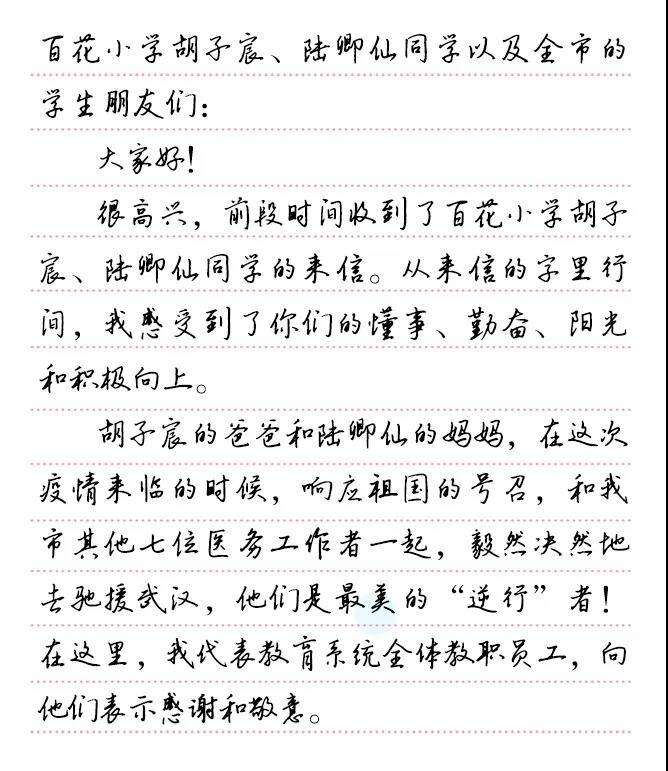 百花小学胡子宸、陆卿仙同学以及全市的
学生朋友们：
大家好！
很高兴，前段时间收到了百花小学胡子
宸、陆卿仙同学的来信。从来信的字里行
间，我感受到了你们的懂事、勤奋、阳光
和积极向上。
胡子宸的爸爸和陆卿仙的妈妈，在这次
疫情来临的时候，响应祖国的号召，和我
市其他七位医务工作者一起，毅然决然地
去驰援武汉，他们是最美的“逆行”者！
在这里，我代表教育系统全体教职员工，向
他们表示感谢和敬意。